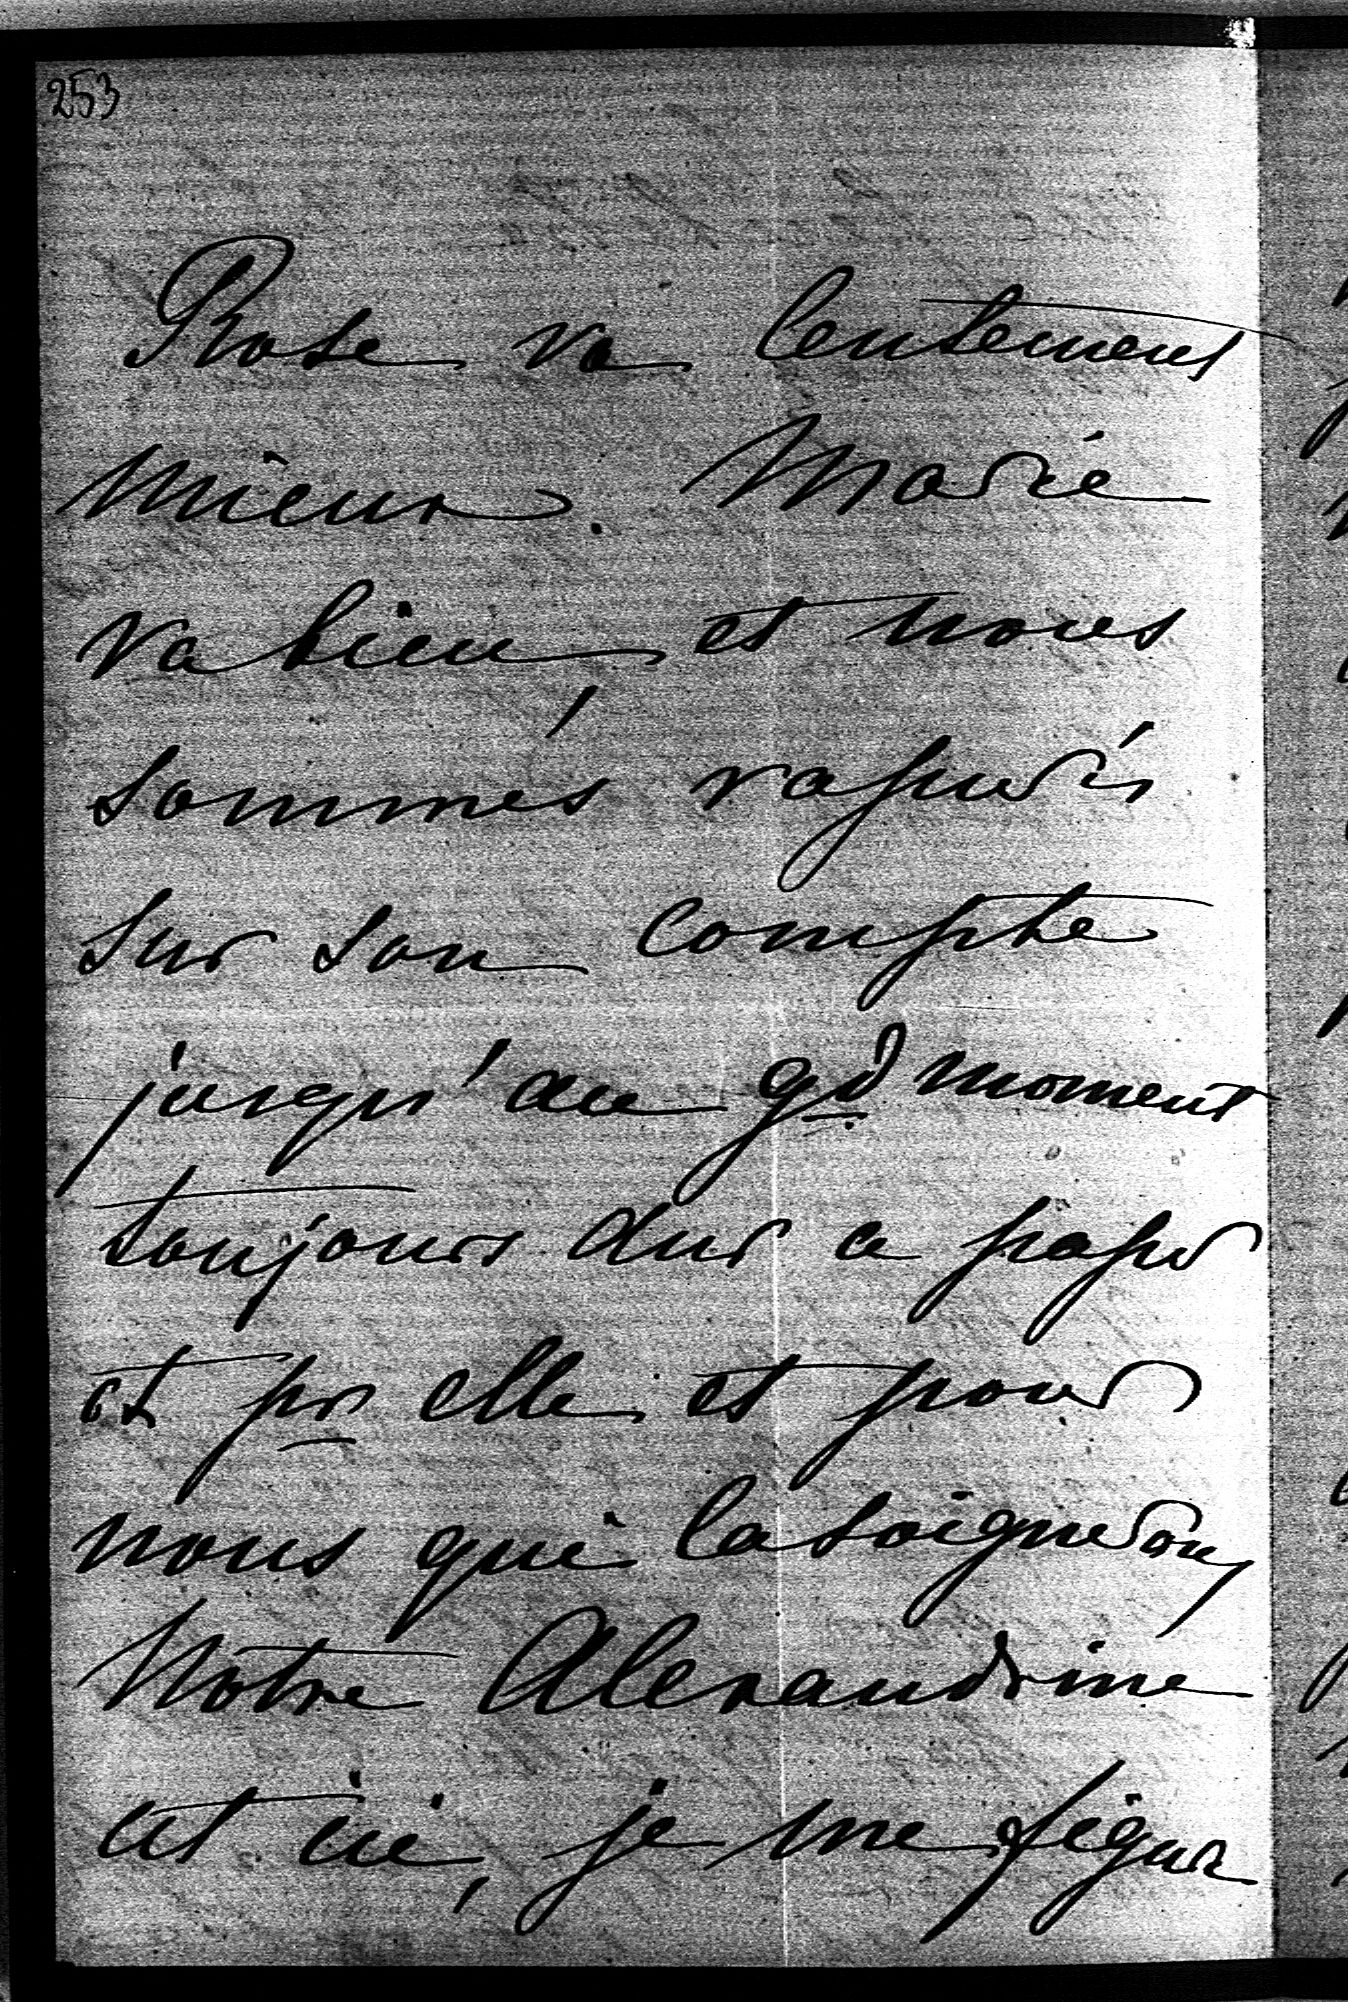 253
Rose va lentement
mieux. Marie
va bien et nous
sommés rassurés
sur son compte
jusqu'au gd moment
toujours dur a passer
et pr elle et pour
nous qui la soignerons
Notre Alexandrine
est ici, je me figure